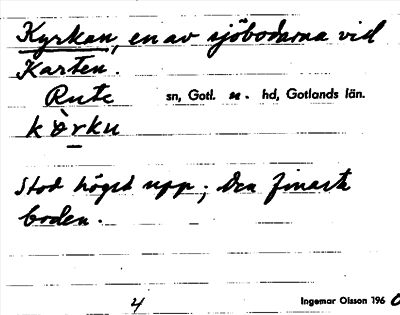 Kyrkan, en av sjöbodarna vid
Karten.
Rute sn, Gotl. n. hd, Gotlands län.
Stod högst upp; den finaste
boden.
4 Ingemar Olsson 1960